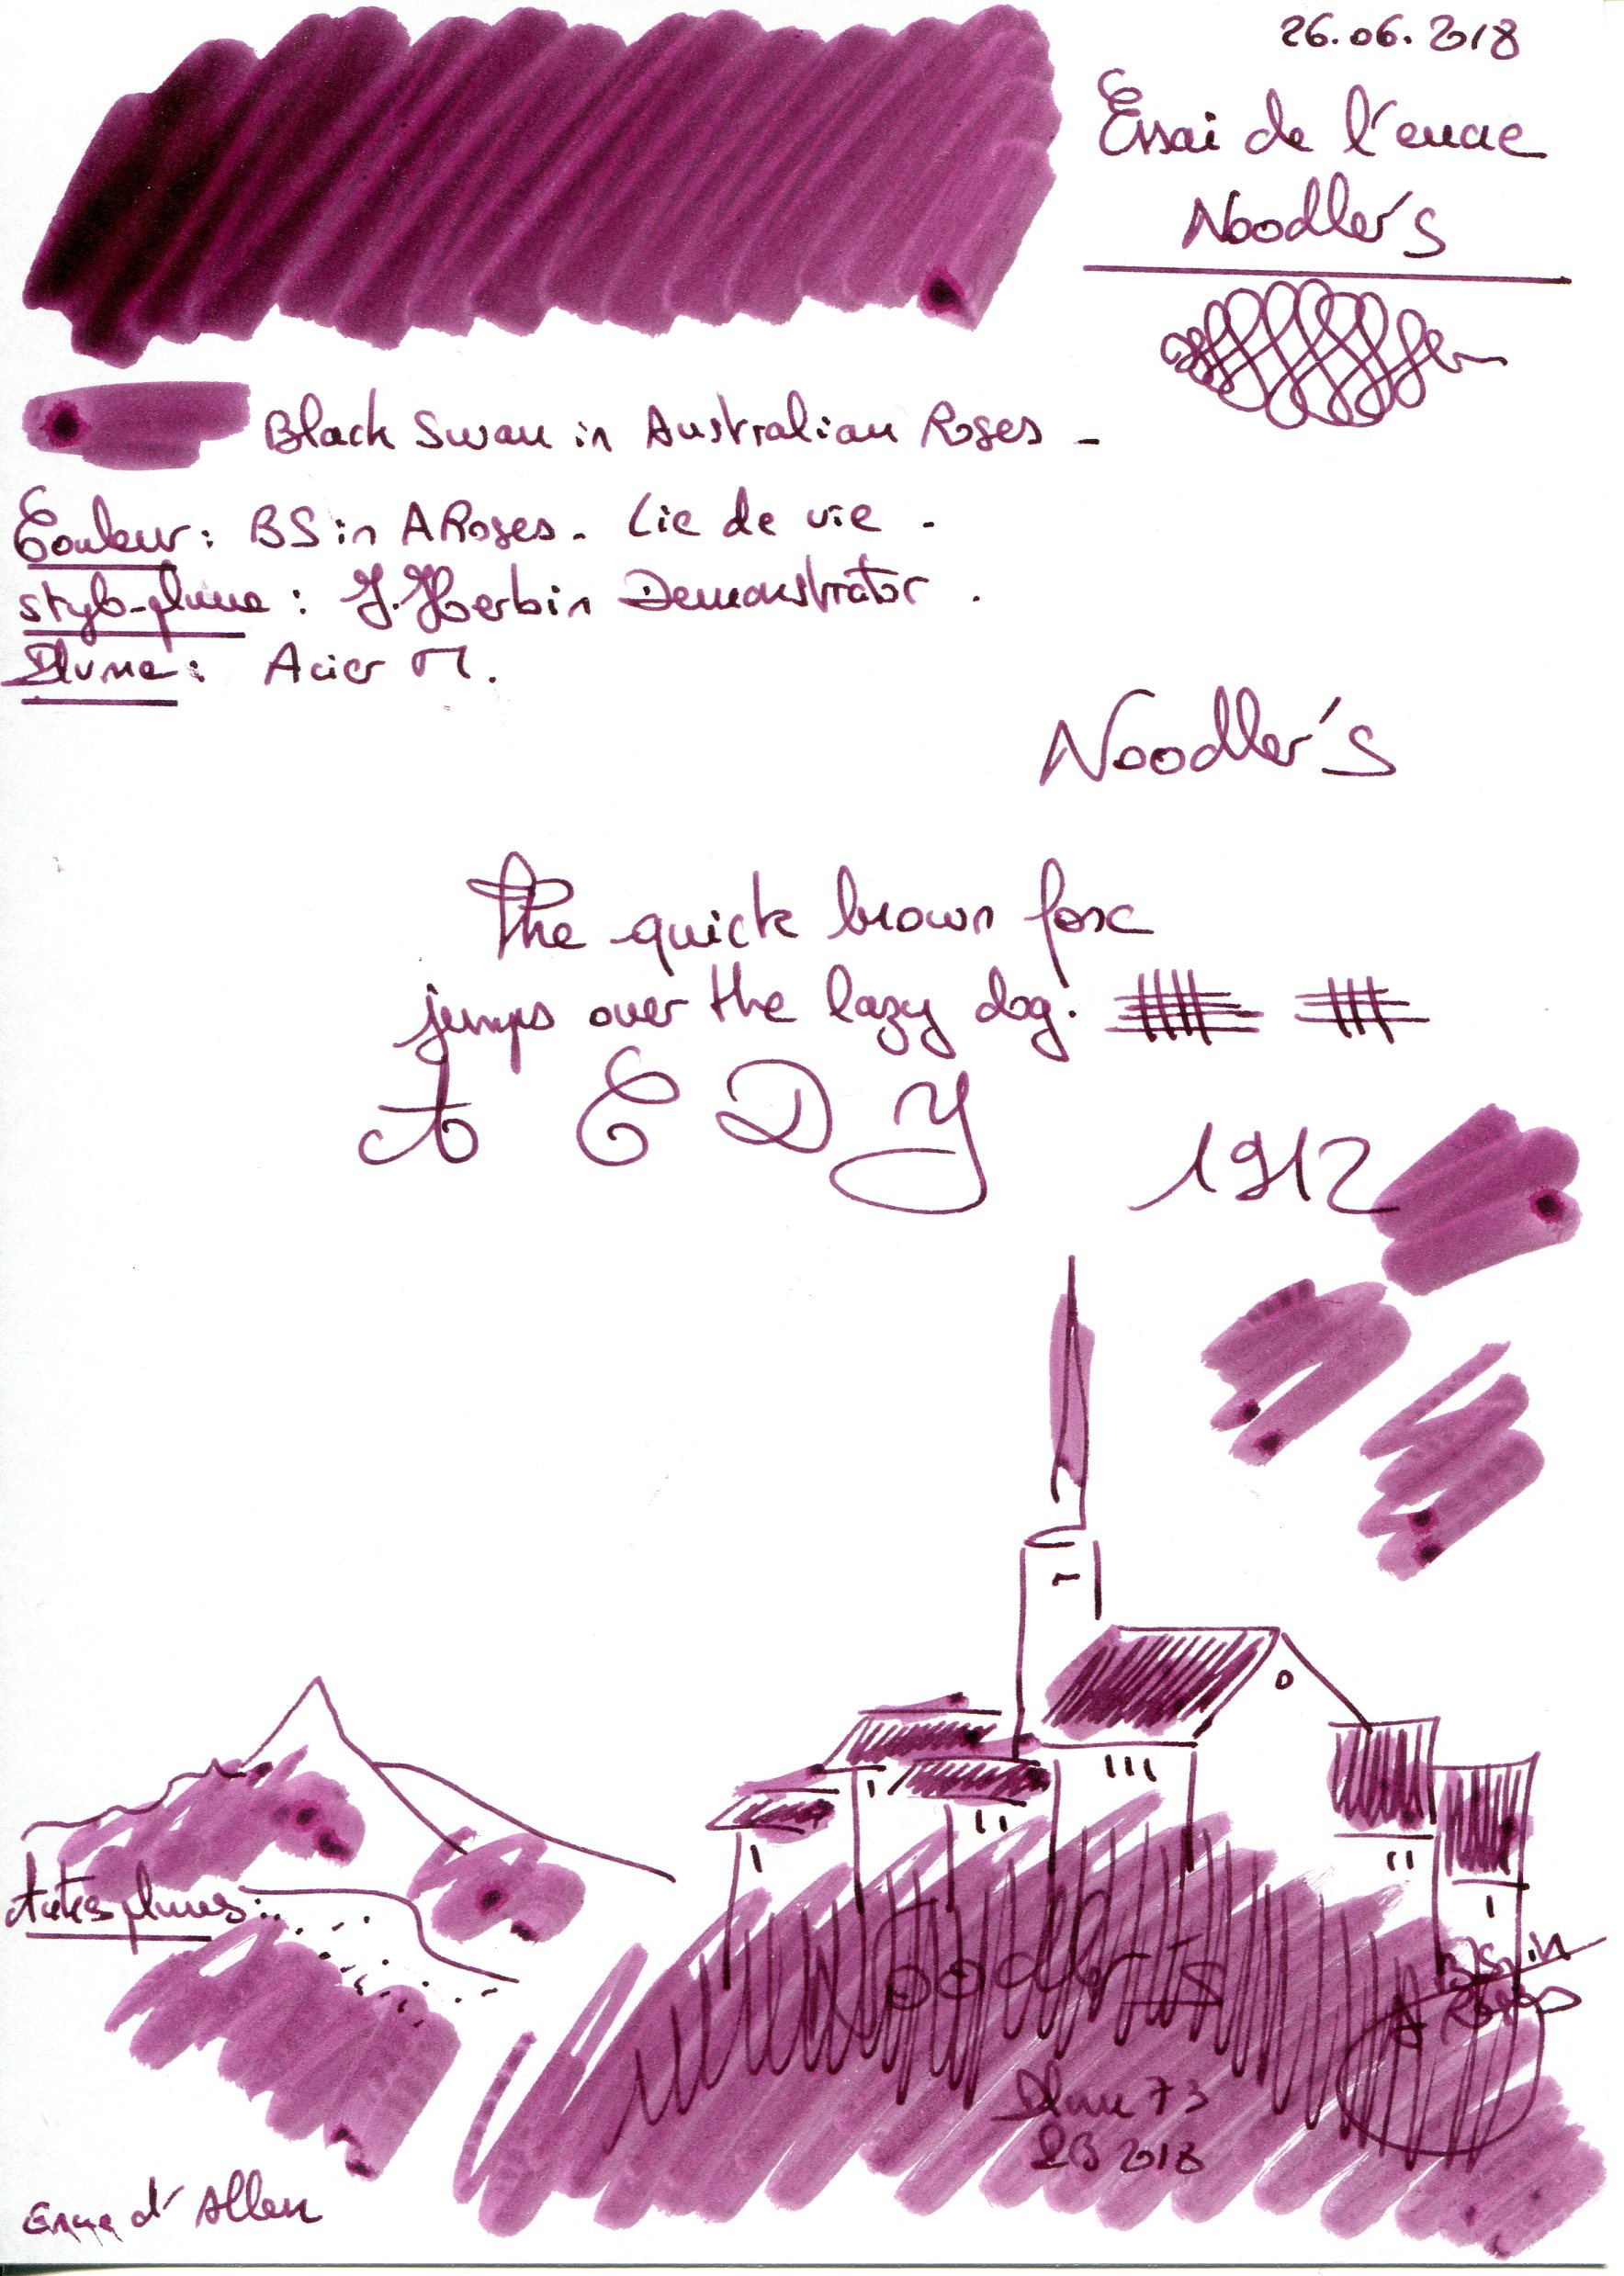 26.06.2018
Essai de l'encre
Noodler's
Black Swan in Australian Roses -
Couleur : BS in A Roses. Lie de vie -
stylo-plume : J. Herbin Demonstrator.
Plume : Acier M.
Noodler's
The quick brown fox
jumps over the lazy dog.
A E D Y
1912
Autres plumes :
Noodler's
BS in
A Roses
Plume 73
2018
Encre d'Allen